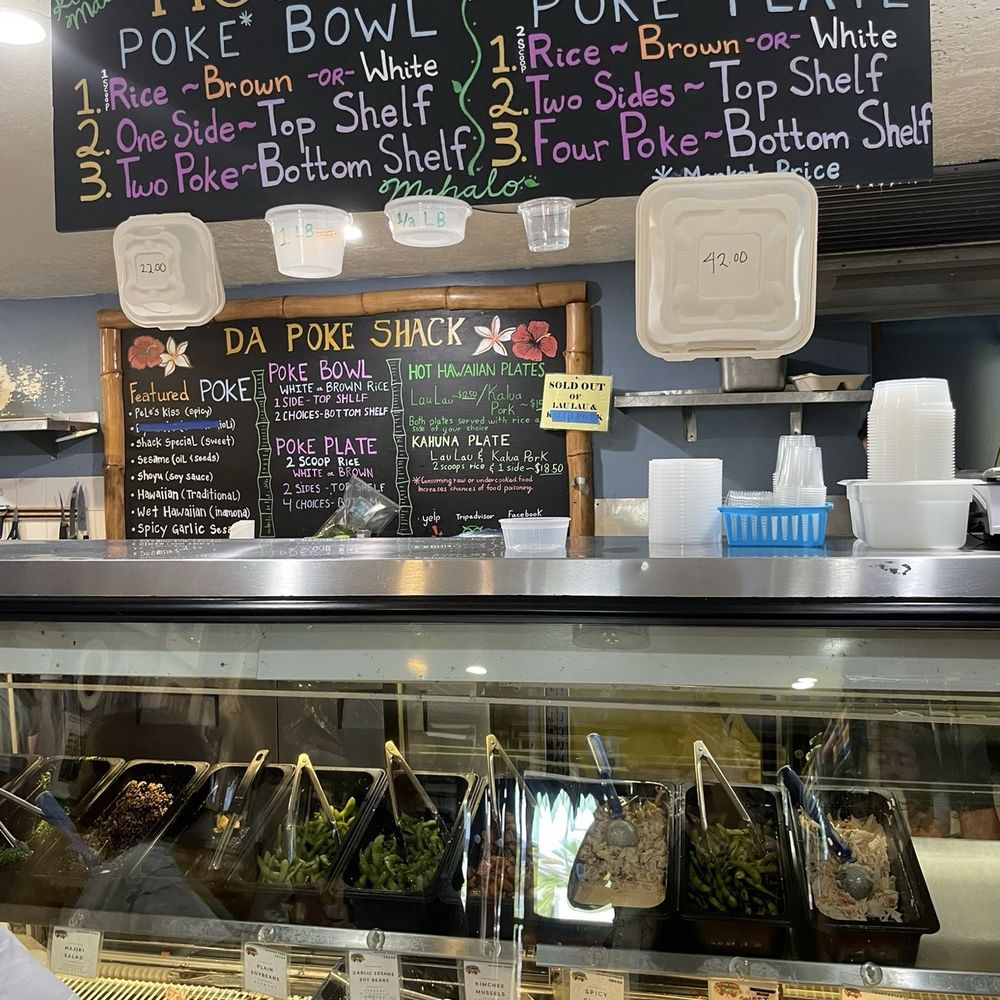 POKE* BOWL
1. 1 SCOOP Rice ~ Brown -OR- White
2. One Side ~ Top Shelf
3. Two Poke ~ Bottom Shelf
POKE PLATE
1. 2 SCOOP Rice ~ Brown -OR- White
2. Two Sides ~ Top Shelf
3. Four Poke ~ Bottom Shelf
* Market Price
Mahalo
22.00
1 LB
1/2 LB
42.00
DA POKE SHACK
Featured POKE
• Pele's Kiss (spicy)
• Shack Special (sweet)
• Sesame (oil & seeds)
• Shoyu (soy sauce)
• Hawaiian (Traditional)
• Wet Hawaiian (inamona)
• Spicy Garlic Sesa
POKE BOWL
WHITE or BROWN RICE
1 SIDE - TOP SHELF
2 CHOICES - BOTTOM SHELF
POKE PLATE
2 SCOOP RICE
WHITE or BROWN
2 SIDES - TOP SHELF
4 CHOICES - B
HOT HAWAIIAN PLATES
Lau Lau ~ $12.50 / Kalua
Pork ~ $1
Both plates served with rice &
side of your choice
KAHUNA PLATE
Lau Lau & Kalua Pork
2 scoops rice & 1 side ~ $18.50
*Consuming raw or undercooked food
increases chances of food poisoning.
• yelp Tripadvisor Facebook
SOLD OUT
OF
LAU LAU &
HAJIKI
SALAD
PLAIN
SOYBEANS
GARLIC SESAME
SOY BEANS
KIMCHEE
MUSSELS
SPICY